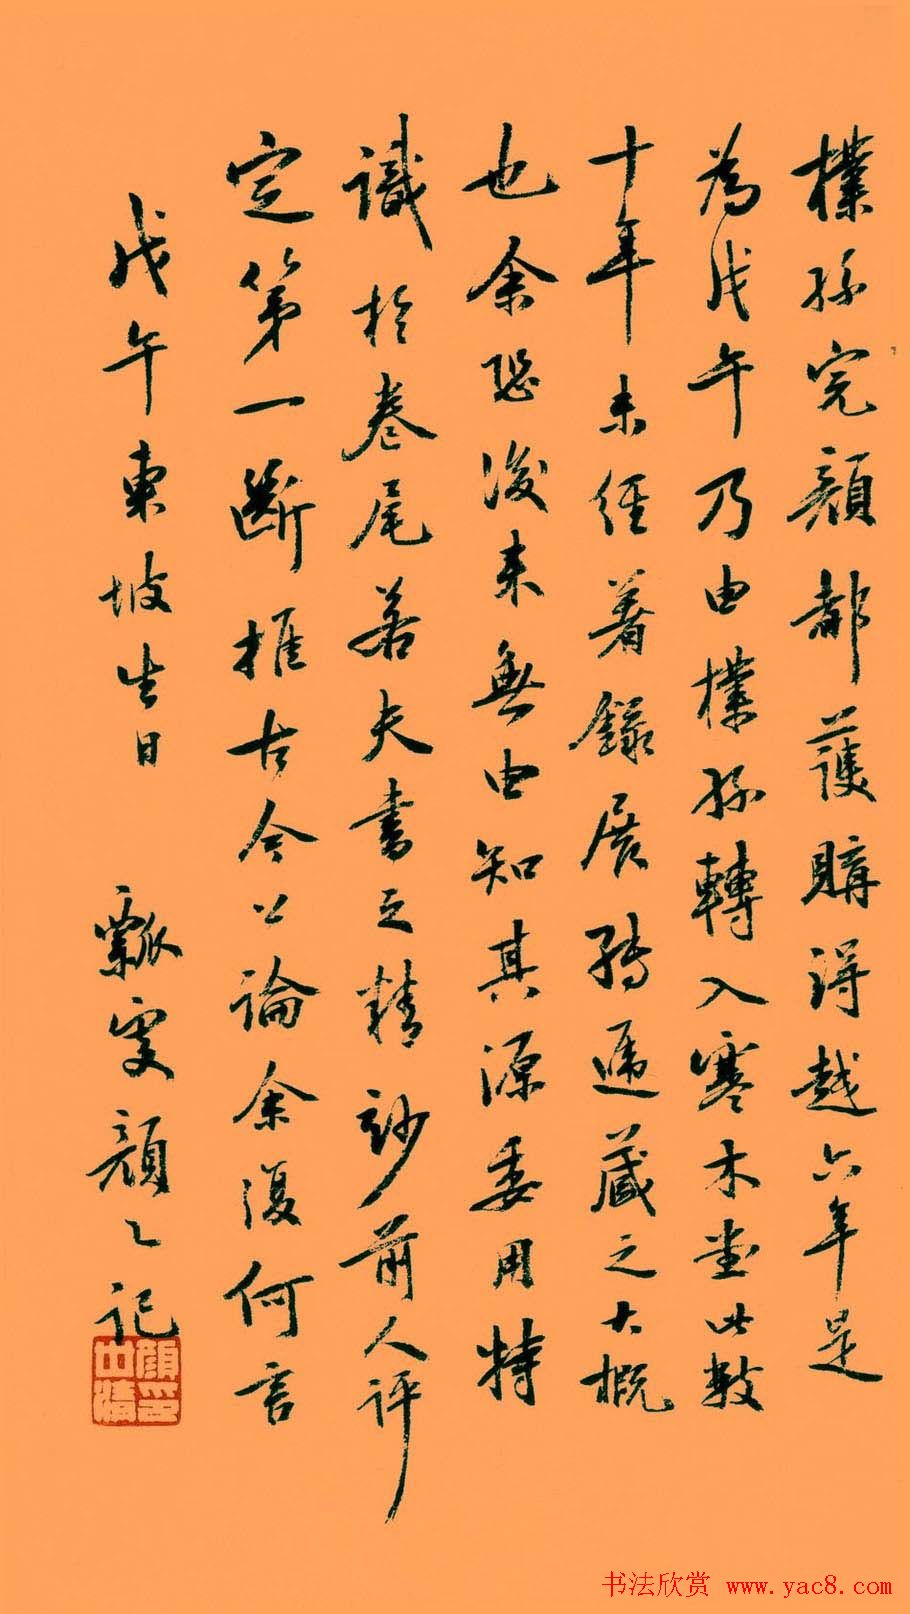 樸孫完顏都護購得越六年是
為戊午乃由樸孫轉入寒木堂此數
十年未經著錄展轉遞藏之大概
也余恐後来無由知其源委用特
識於卷尾若夫書之精妙前人評
定第一斷推古今公論余復何言
戊午東坡生日 瓢叟顏 記
顏世清印
书法欣赏 www.yac8.com